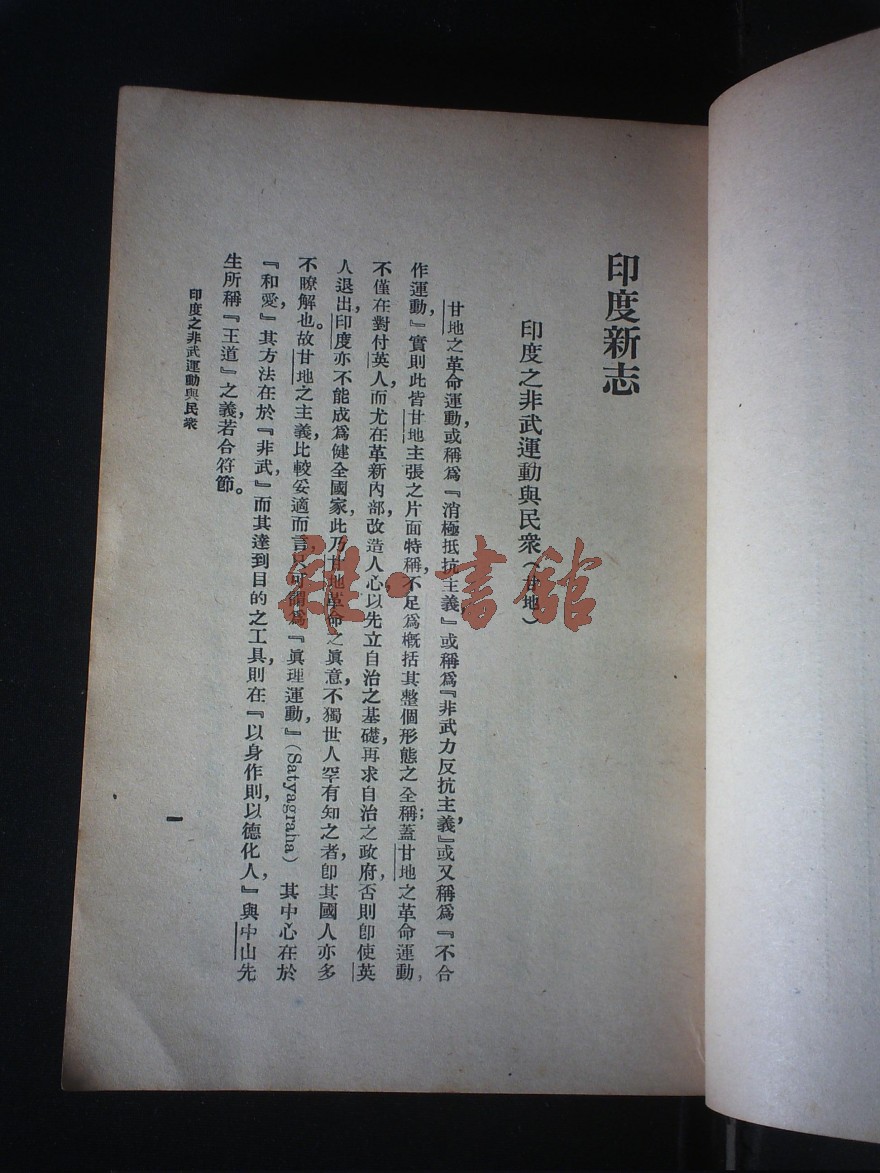 印度新志
印度之非武運動與民衆（甘地）
甘地之革命運動，或稱爲『消極抵抗主義，』或稱爲『非武力反抗主義，』或又稱爲『不合
作運動，』實則此皆甘地主張之片面特稱，不足爲概括其整個形態之全稱；蓋甘地之革命運動，
不僅在對付英人，而尤在革新內部，改造人心，以先立自治之基礎，再求自治之政府，否則卽使英
人退出，印度亦不能成爲健全國家，此乃甘地革命之眞意，不獨世人罕有知之者，卽其國人亦多
不瞭解也。故甘地之主義，比較妥適而言，只可謂爲『眞理運動，』（Satyagraha）其中心在於
『和愛，』其方法在於『非武，』而其達到目的之工具，則在『以身作則，以德化人，』與中山先
生所稱『王道』之義，若合符節。
印度之非武運動與民衆
一
雜·書館